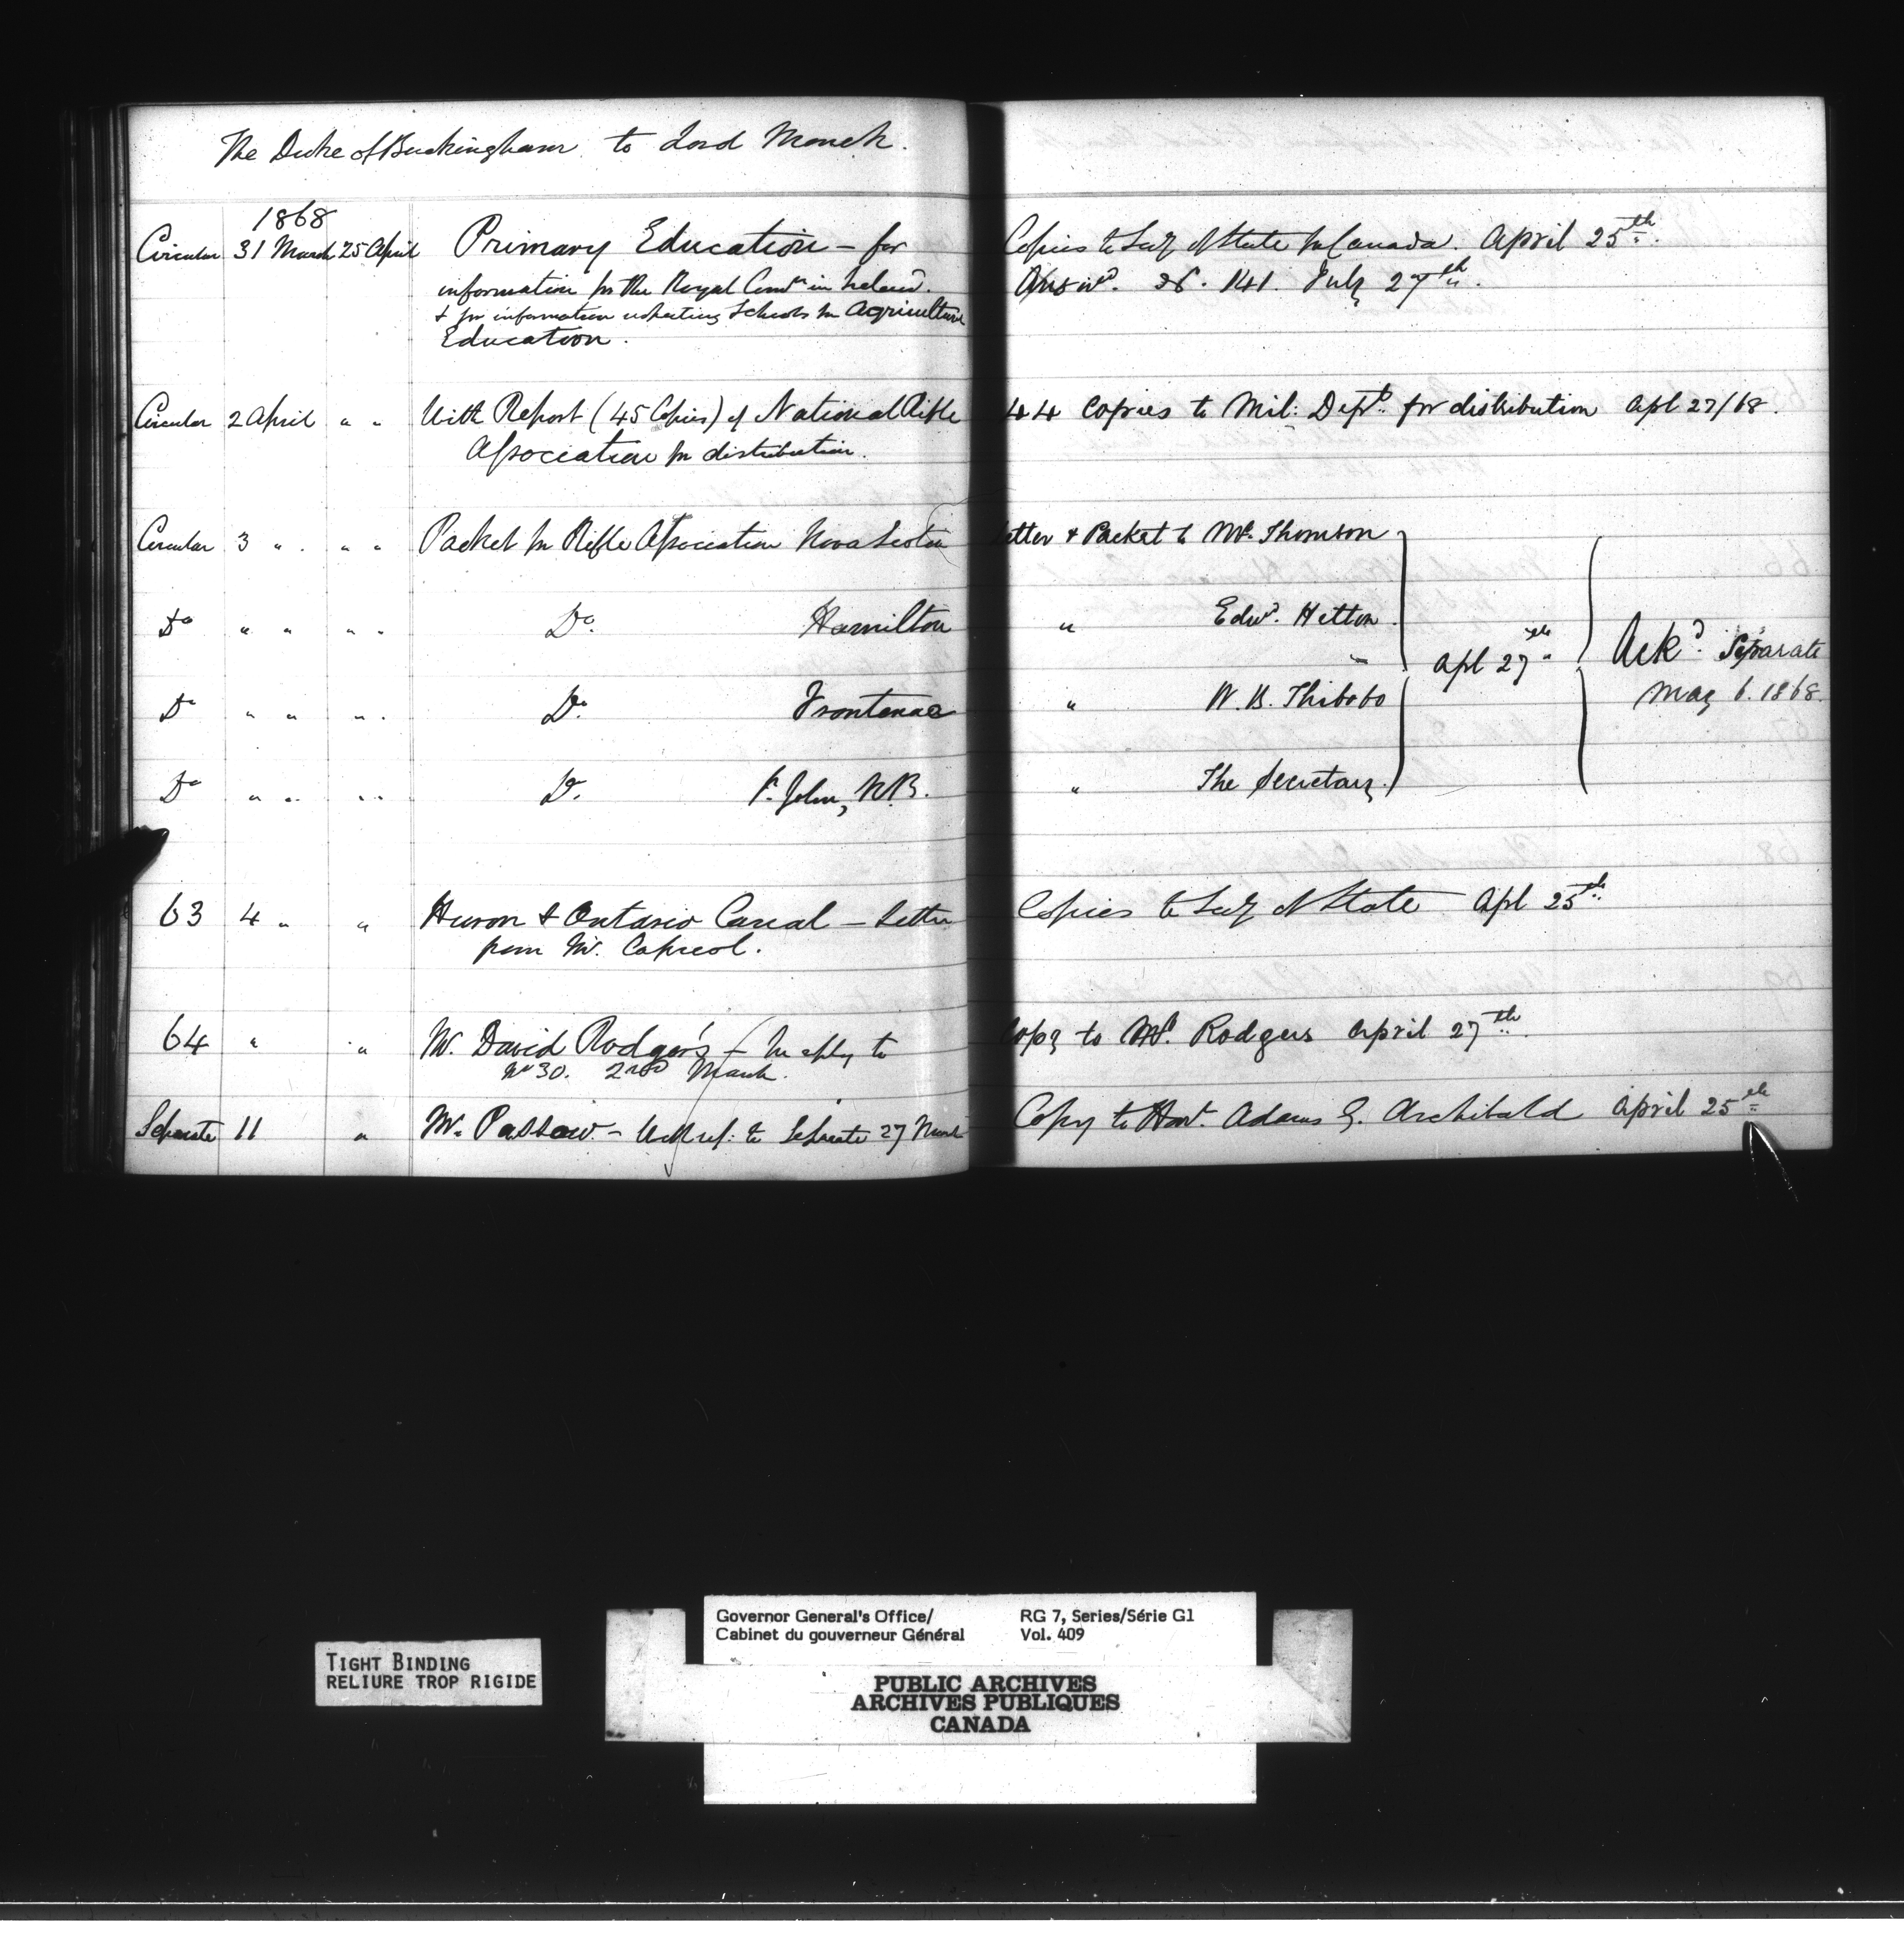 The Duke of Buckingham to Lord Monck.
1868
Circular 31 March 25 April Primary Education – for
information for the Royal Comn in Ireland.
& for information respecting Schools for Agriculture
Education.
Circular 2 April " " With Report (45 Copies) of National Rifle
Association for distribution.
Circular 3 " " " Packet for Rifle Association Nova Scotia
Do " " " " Do Hamilton
Do " " " " Do Frontenac
Do " " " " Do St. John, N.B.
63 4 " " Huron & Ontario Canal – Letter
from Mr. Capreol.
64 " " Mr. David Rodgers – In reply to
No 30. 2nd March.
Separate 11 " Mr. Passow – With ref: to Separate 27
Copies to Secy of State for Canada. April 25th.
Answd. 141. July 27th.
44 Copies to Mil: Dept. for distribution Apl 27/68.
Letter & Packet to Mr. Thomson
" Edwd. Hilton
Apl 27th
Ackd. Separate
" W. B. Thibodo
May 6. 1868.
" The Secretary.
Copies to Secy of State Apl 25th
Copy to Mr. Rodgers April 27th.
Copy to Hon. Adams G. Archibald April 25th
Governor General's Office/
Cabinet du gouverneur Général
RG 7, Series/Série G1
Vol. 409
TIGHT BINDING
RELIURE TROP RIGIDE
PUBLIC ARCHIVES
ARCHIVES PUBLIQUES
CANADA